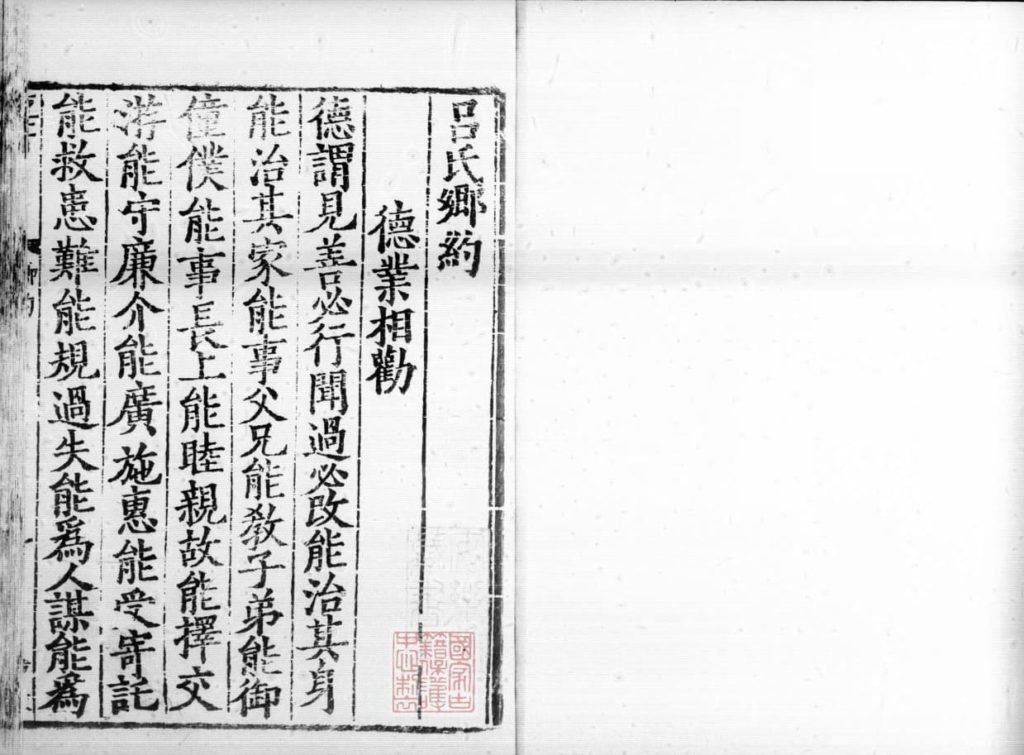 吕氏鄉約
德業相勸
德謂見善必行聞過必改能治其身
能治其家能事父兄能敎子弟能御
僮僕能事長上能睦親故能擇交
游能守廉介能廣施惠能受寄託
能救患難能規過失能爲人謀能爲